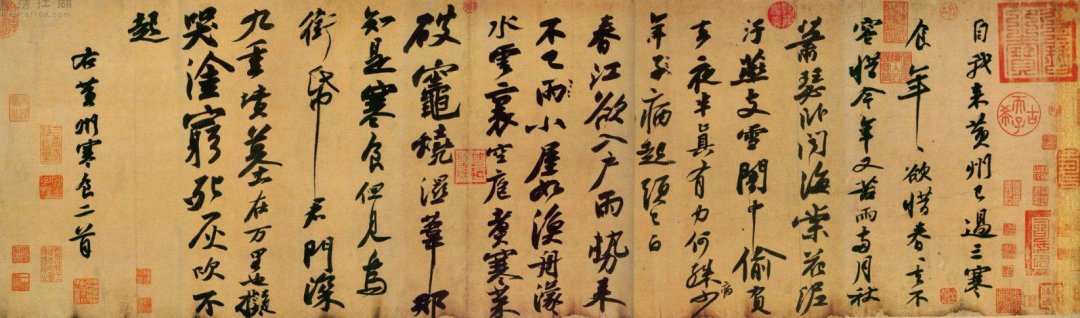 自我来黄州已過三寒
食年〻欲惜春〻去不
容惜今年又苦雨両月秋
蕭瑟卧聞海棠花泥
汙燕支雪闇中偷負
去夜半真有力何殊少
年子病起頭已白
春江欲入户雨勢来
不已雨小屋如漁舟濛〻
水雲裏空庖煮寒菜
破竈燒濕葦那
知是寒食但見烏
銜帋君門深
九重墳墓在万里也擬
哭塗窮死灰吹不
起
右黄州寒食二首